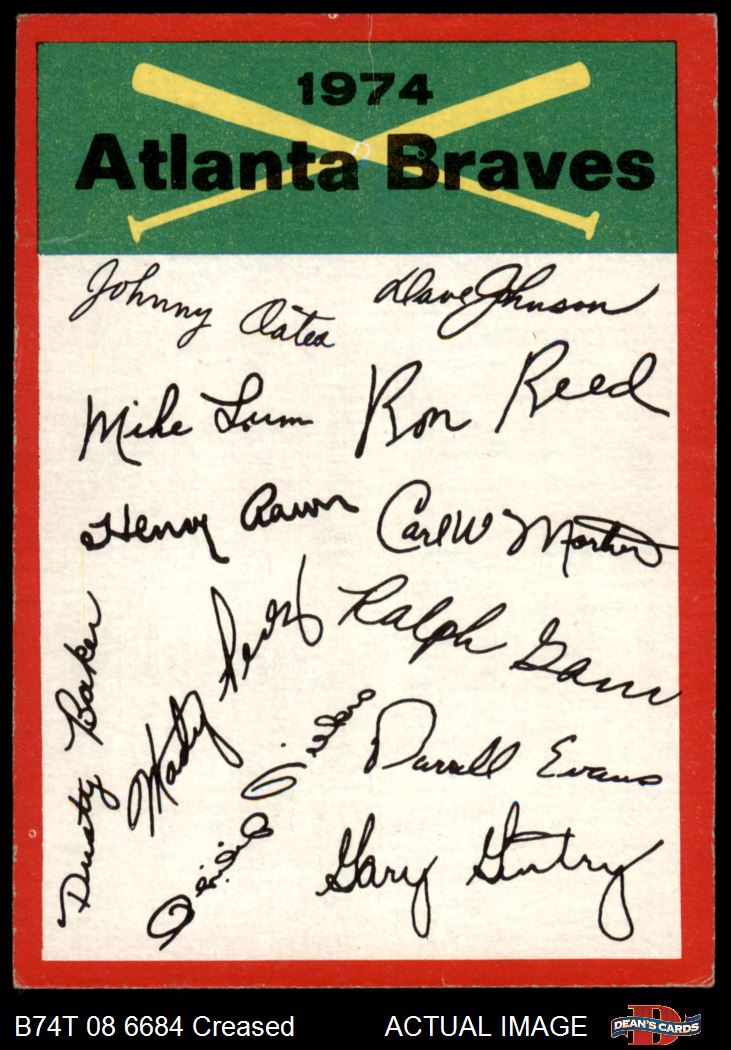 1974
Atlanta Braves
Johnny Oates Dave Johnson
Mike Lum Ron Reed
Henry Aaron Carl W Morton
Marty Perez Ralph Garr
Dusty Baker Darrell Evans
Gary Gentry
B74T 08 6684 Creased ACTUAL IMAGE DEAN'S CARDS